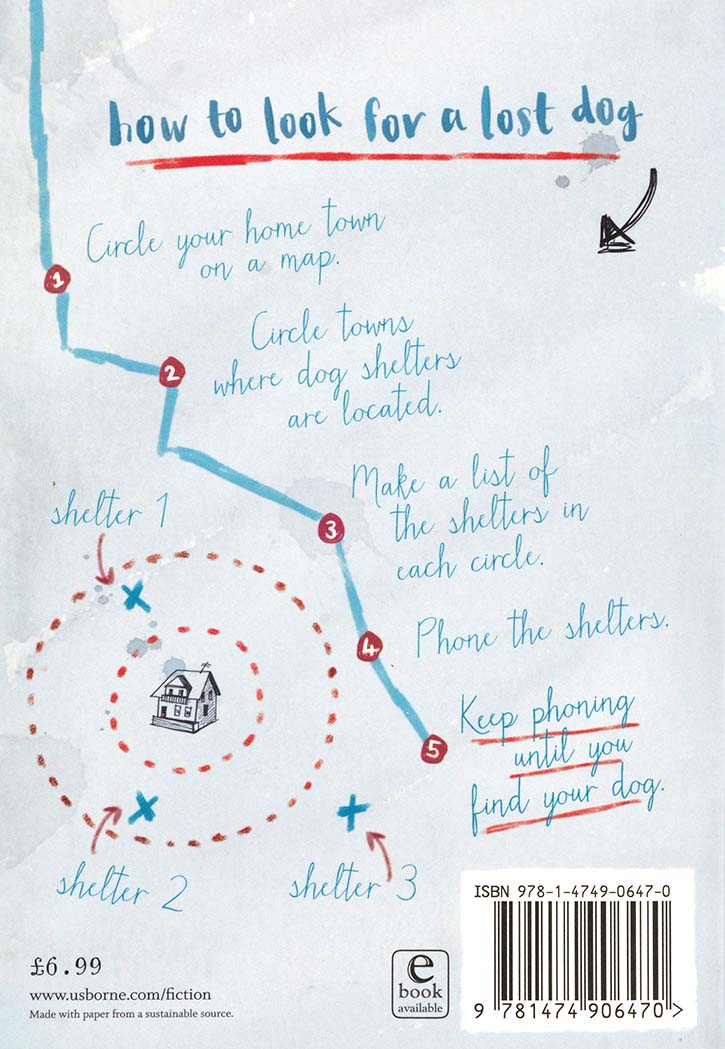 how to look for a lost dog
1
Circle your home town
on a map.
2
Circle towns
where dog shelters
are located.
3
Make a list of
the shelters in
each circle.
shelter 1
4
Phone the shelters.
5
Keep phoning
until you
find your dog.
shelter 2
shelter 3
ISBN 978-1-4749-0647-0
9 781474 906470 >
£6.99
www.usborne.com/fiction
Made with paper from a sustainable source.
e
book
available